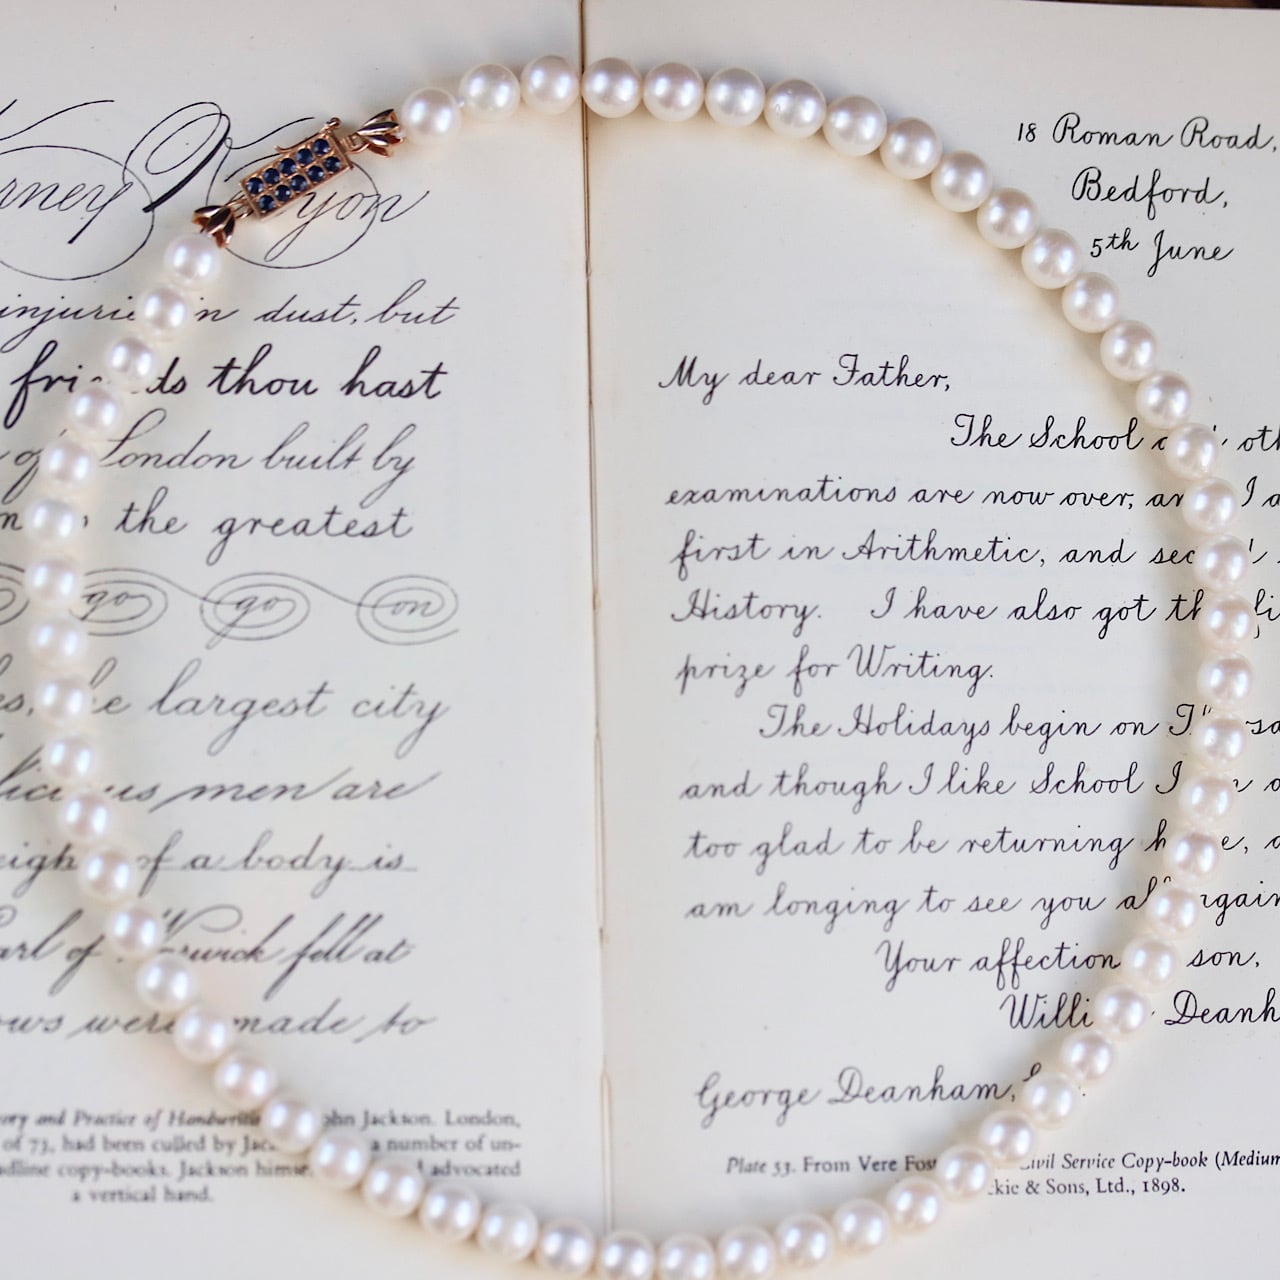 injuri n dust, but
fri ds thou hast
of London built by
the greatest
go go on
largest city
us men are
eigh of a body is
arl of rwick fell at
ows were made to
ory and Practice of Handwriting John Jackson. London,
of 73, had been culled by Jac a number of un-
adline copy-books. Jackson himse advocated
a vertical hand.
18 Roman Road,
Bedford,
5th June
My dear Father,
The School oth
examinations are now over, an I a
first in Arithmetic, and sec
History. I have also got th fi
prize for Writing.
The Holidays begin on
and though I like School I
too glad to be returning h e,
am longing to see you al again
Your affection son,
Willi Deanh
George Deanham,
Plate 53. From Vere Fos Civil Service Copy-book (Medium
ckie & Sons, Ltd., 1898.